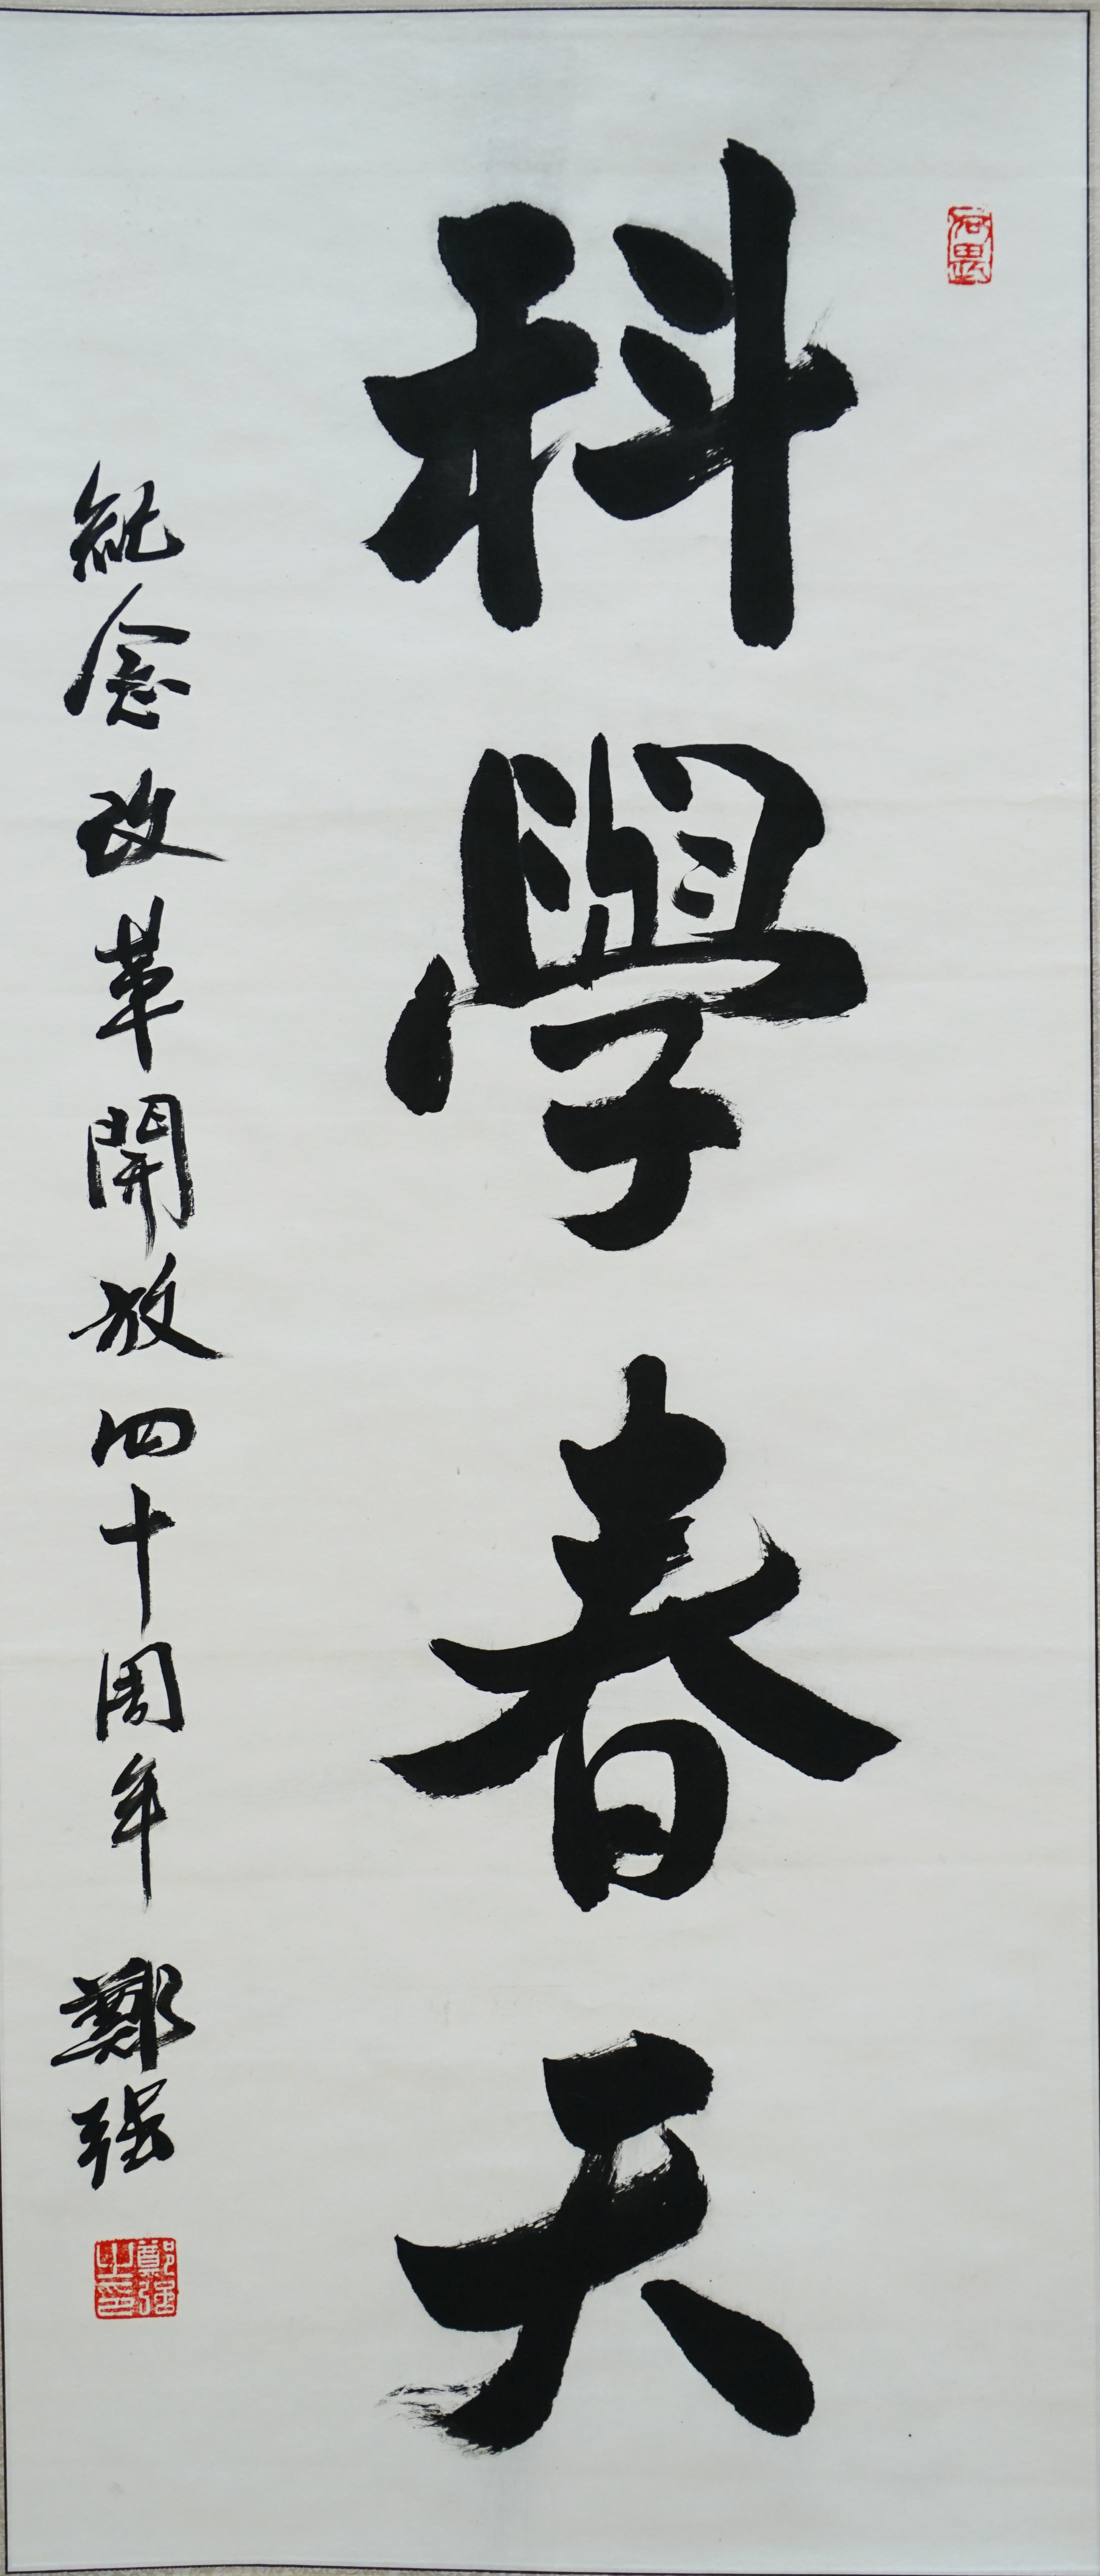 科學春天
紀念改革開放四十周年 鄭强
鄭强之印